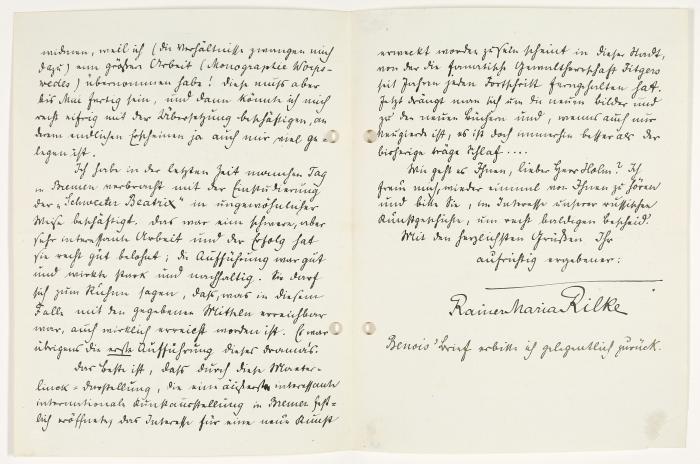 widmen, weil ich (die Verhältnisse zwangen mich
dazu) eine größere Arbeit (Monographie Worps-
wedes) übernommen habe! Diese muß aber
bis Mai fertig sein, und dann könnte ich mich
recht eifrig mit der Übersetzung beschäftigen, an
deren endlichen Erscheinen ja auch mir viel ge-
legen ist.
Ich habe in der letzten Zeit manchen Tag
in Bremen verbracht mit der Einstudierung
der „Schwester Beatrix" in ungewöhnlicher
Weise beschäftigt. Das war eine schwere, aber
sehr interessante Arbeit und der Erfolg hat
sie recht gut belohnt; die Aufführung war gut
und wirkte stark und nachhaltig. Sie darf
sich zum Ruhm sagen, daß, was in diesem
Falle mit den gegebenen Mitteln erreichbar
war, auch wirklich erreicht worden ist. Es war
übrigens die erste Aufführung dieses Dramas.
Das beste ist, daß durch diese Maeter-
linck-Darstellung, die eine äußerst interessante
internationale Kunstausstellung in Bremen fest-
lich eröffnete, das Interesse für eine neue Kunst
erweckt worden zu sein scheint in dieser Stadt,
von der die fanatische Gewaltherrschaft Fitgers
seit Jahren jeden Fortschritt ferngehalten hat.
Jetzt drängt man sich um die neuen Bilder und
zu den neuen Büchern und, wenns auch nur
Neugierde ist, es ist doch immerhin besser als der
bisherige träge Schlaf....
Wie geht es Ihnen, lieber Herr Holm? Ich
freue mich, wieder einmal von Ihnen zu hören
und bitte Sie, im Interesse unserer russischen
Kunstgeschichte, um recht baldigen Bescheid.
Mit den herzlichsten Grüßen Ihr
aufrichtig ergebener:
Rainer Maria Rilke
Benois' Brief erbitte ich gelegentlich zurück.